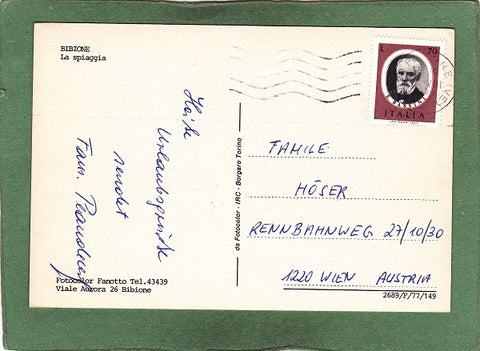 BIBIONE
La spiaggia
Heiße
Urlaubsgrüße
sendet
Fam.
Fotocolor Fanotto Tel.43439
Viale Aurora 26 Bibione
da Fotocolor - IRC - Borgaro Torino
L 70
ITALIA
FAMILE
HÖSER
RENNBAHNWEG 27/10/30
1220 WIEN AUSTRIA
2689/P/77/149